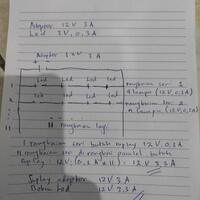 Adaptor 12 V 3 A
Led 3 V, 0,3 A
Adaptor 12 V 3 A
+ -
Led Led Led Led
1 rangkaian seri 1
4 lampu (12 V, 0,3 A)
Led Led Led Led
2 rangkaian seri 2
4 lampu (12 V, 0,3 A)
11 11 rangkaian lagi
1 rangkaian seri butuh suplay 12 V, 0,3 A
11 rangkaian seri di rangkai paralel butuh
suplay 12 V, (0,3 A x 11) = 12 V 3,3 A
Suplay adaptor 12 V 3 A
Beban Led 12 V 3,3 A